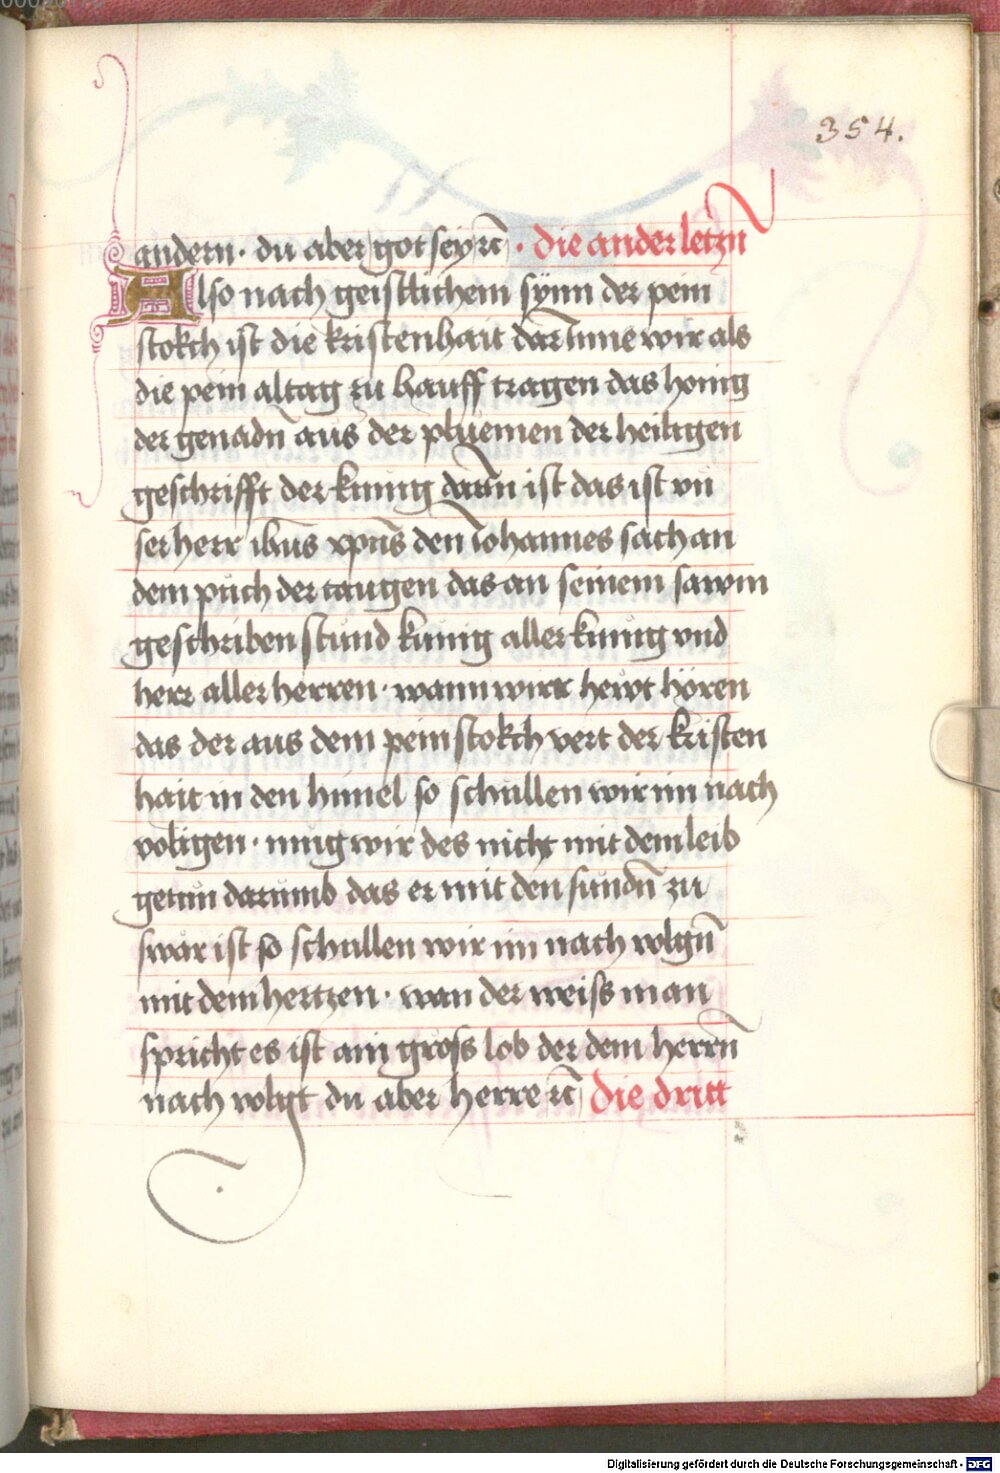 354.
andern · du aber got sey rc̄ · die ander letzn̄
Also nach geistlichem synn der pein
stokch ist die kristenhait dar Inne wir als
die pein altag zu hauff tragen das honig
der genadn̄ aus der pluemen der heiligen
geschrifft der kunig darin ist das ist vn
ser herr ihūs xpūs den Johannes sach an
dem puch der taugen das an seinem sawm
geschriben stund kunig aller kunig vnd
herr aller herren · wann wirr hewt hören
das der aus dem peinstokch vert der kristen
hait in den himel so schullen wir im nach
voligen · mug wir des nicht mit dem leib
getun darumb das er mit den sundn̄ zu
swär ist so schullen wir im nach volgn̄
mit dem hertzen · wan der weiss man
spricht es ist ain gross lob der dem herrn̄
nach volgt du aber herre rc̄ die dritt
Digitalisierung gefördert durch die Deutsche Forschungsgemeinschaft - DFG